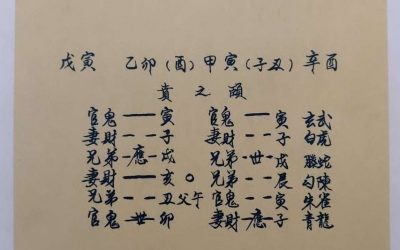 戊寅 乙卯(酉)甲寅(子丑)辛酉
賁之頤
官鬼 — 寅 官鬼 — 寅 玄武
妻財 - - 子 妻財 - - 子 白虎
兄弟 -應- 戌 兄弟 -世- 戌 螣蛇
妻財 — 亥 ○ 兄弟 - - 辰 勾陳
兄弟 - - 丑父午 官鬼 - - 寅 朱雀
官鬼 世 卯 妻財 應 子 青龍